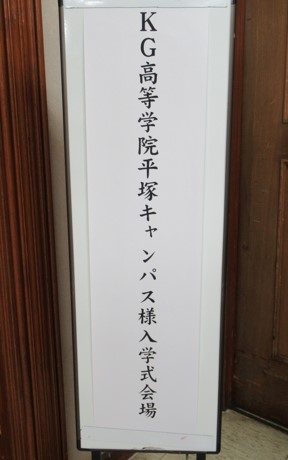 KG高等学院平塚キャンパス様入学式会場